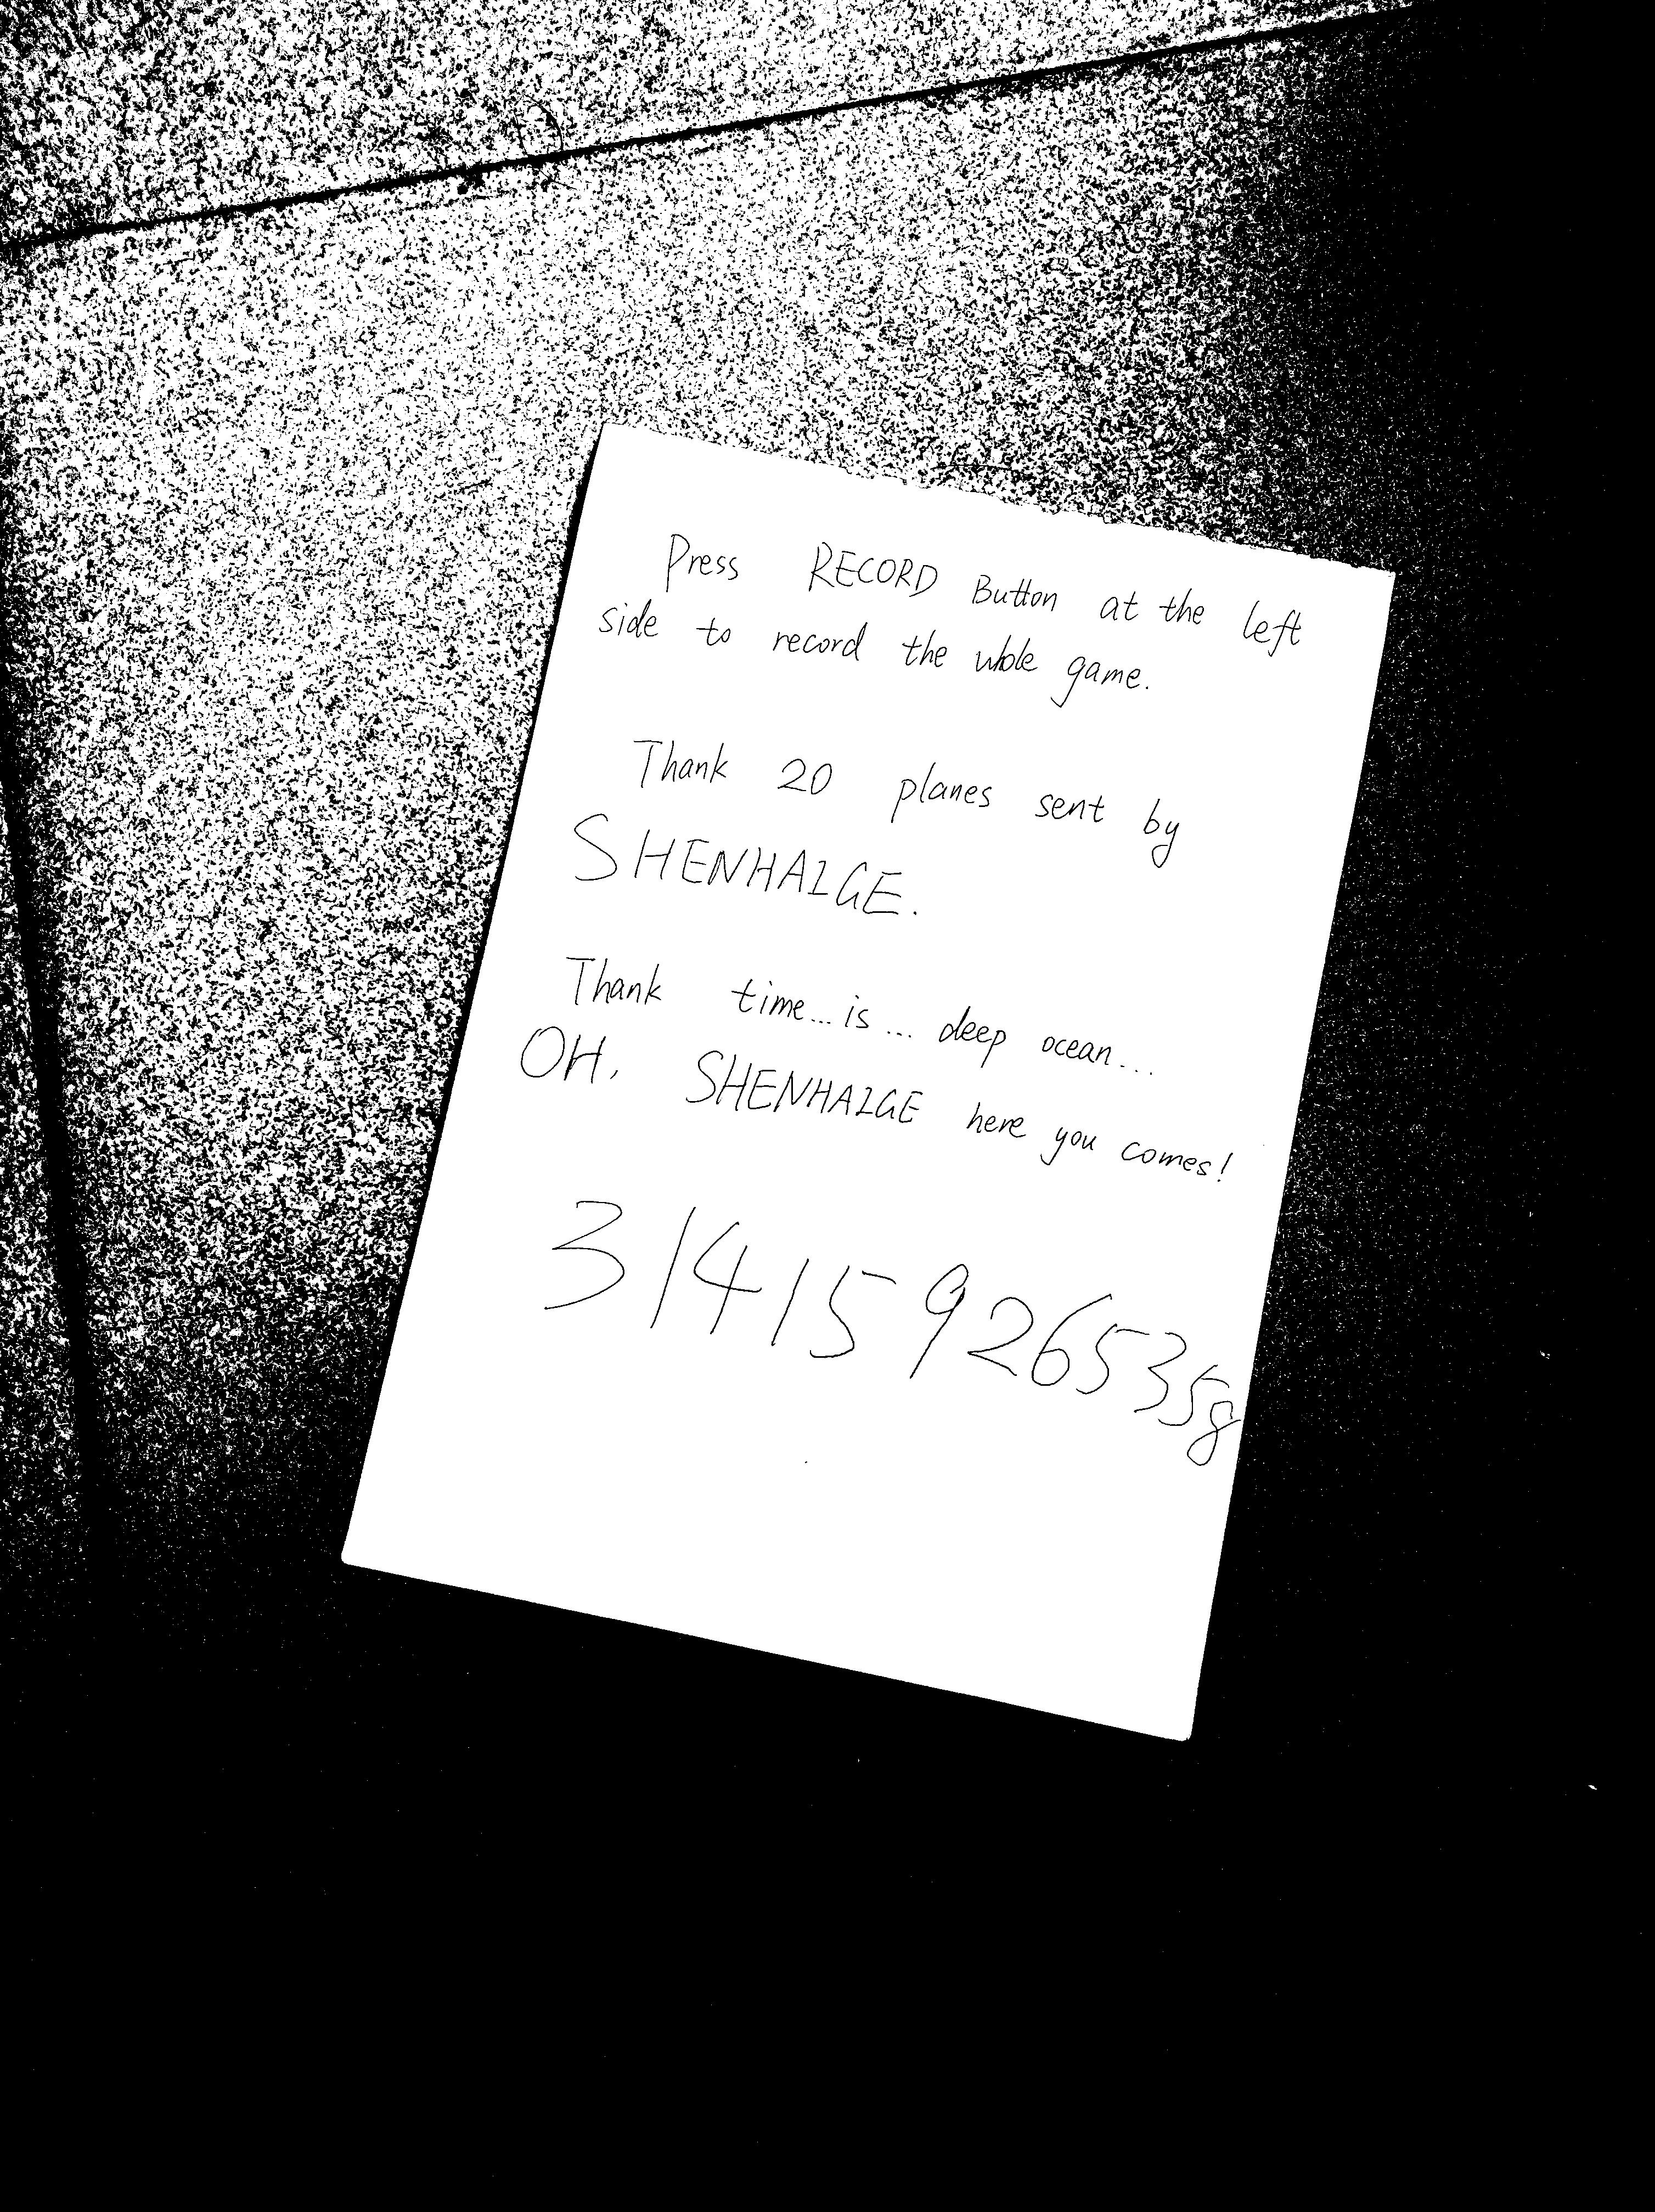 Press RECORD Button at the left
side to record the whole game.
Thank 20 planes sent by
SHENHAIGE.
Thank time...is... deep ocean...
OH, SHENHAIGE here you comes!
314159265358